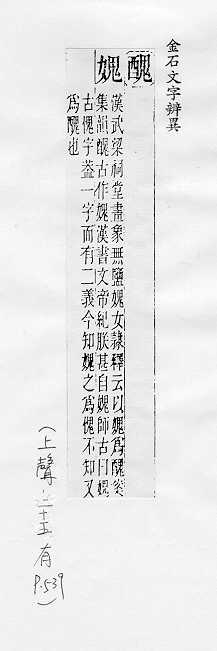 金石文字辨異
醜
媿
漢武梁祠堂畫象無鹽媿女隷釋云以媿爲醜案
集韻醜古作媿漢書文帝紀朕甚自媿師古曰媿
古愧字葢一字而有二義今知媿之爲愧不知又
爲醜也
(上聲 二十五 有
P.539)